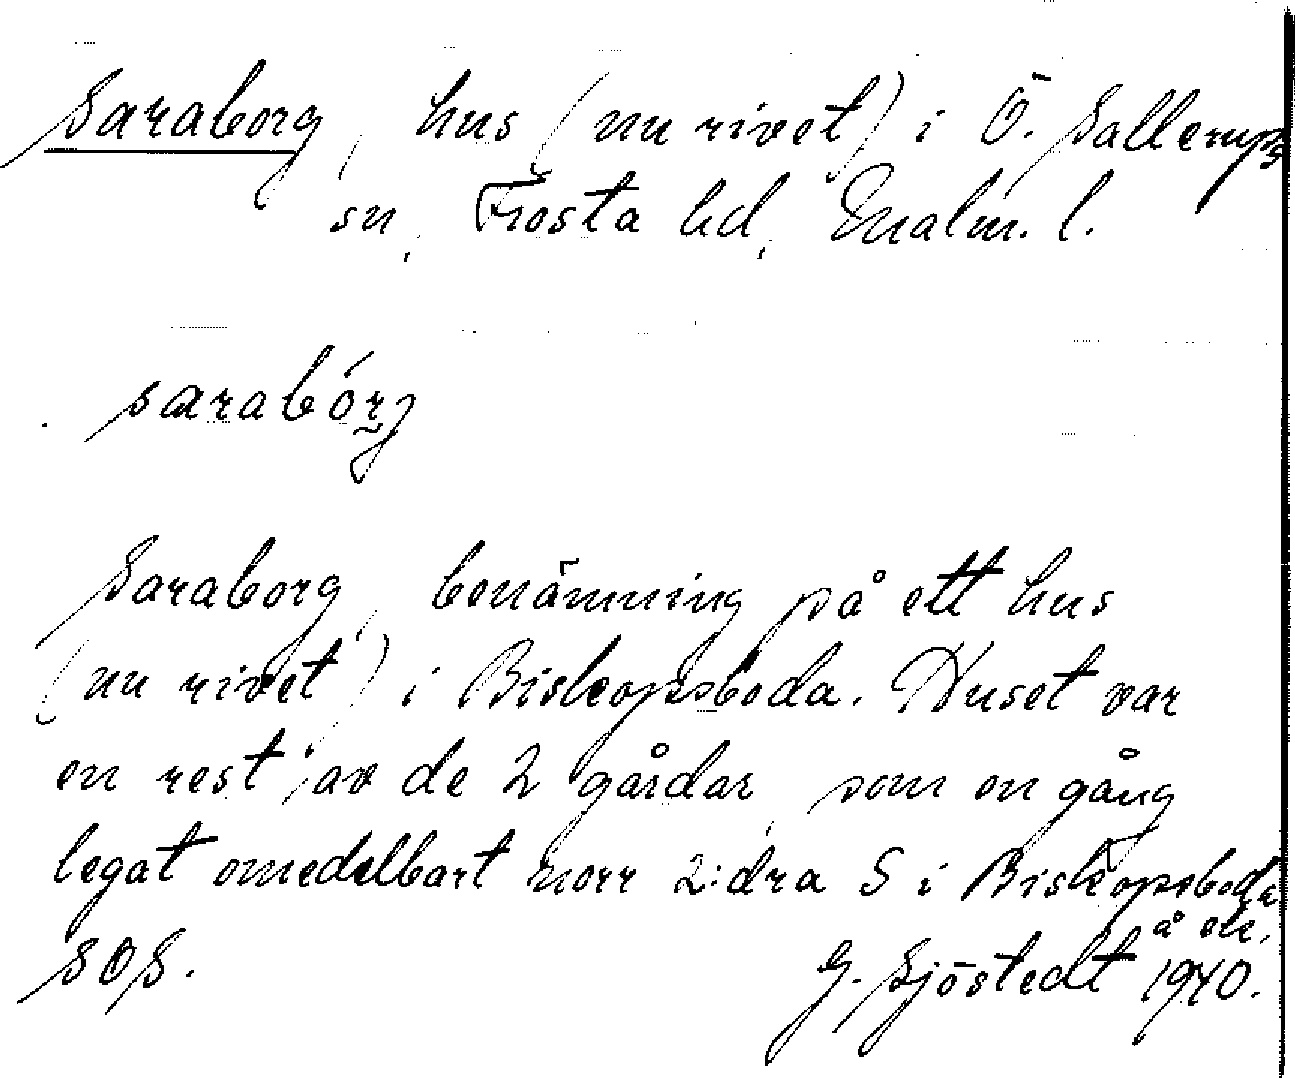 Saraborg, hus (nu rivet) i Ö. Sallerups
sn, Frosta hd, Malm. l.
sarabórj
Saraborg, benämning på ett hus
(nu rivet) i Biskopsboda. Huset var
en rest av de 2 gårdar, som en gång
legat omedelbart norr 2:dra S i Biskopsboda
å ek.
SOS.
G. Sjöstedt 1940.